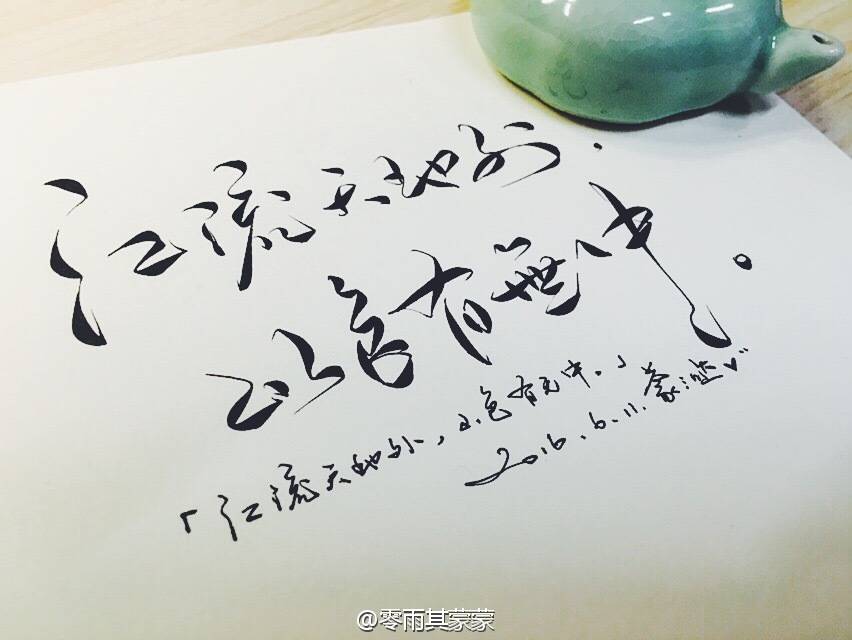 江流天地外.
山色有無中.
「江流天地外,山色有无中。」
2016.6.11.蒙
@零雨其蒙蒙